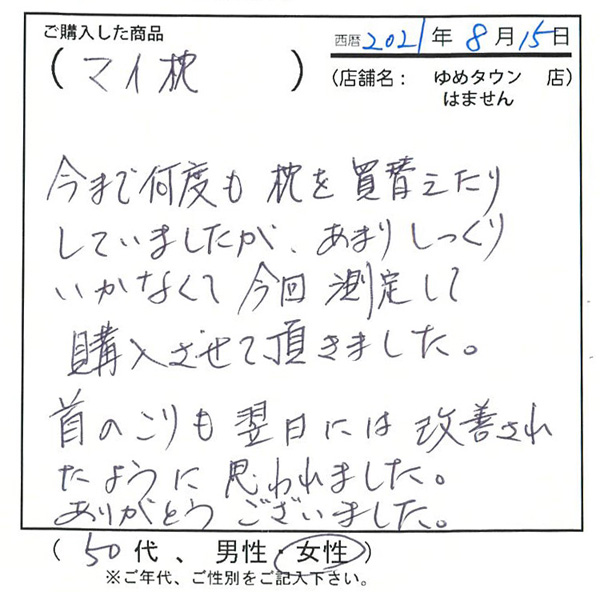 ご購入した商品
西暦 2021 年 8 月 15 日
( マイ枕 )
(店舗名: ゆめタウン 店)
はません
今まで何度も枕を買替えたり
していましたが、あまりしっくり
いかなくて今回測定して
購入させて頂きました。
首のこりも翌日には改善され
たように思われました。
ありがとうございました。
( 50 代 、 男性・女性 )
※ご年代、ご性別をご記入下さい。